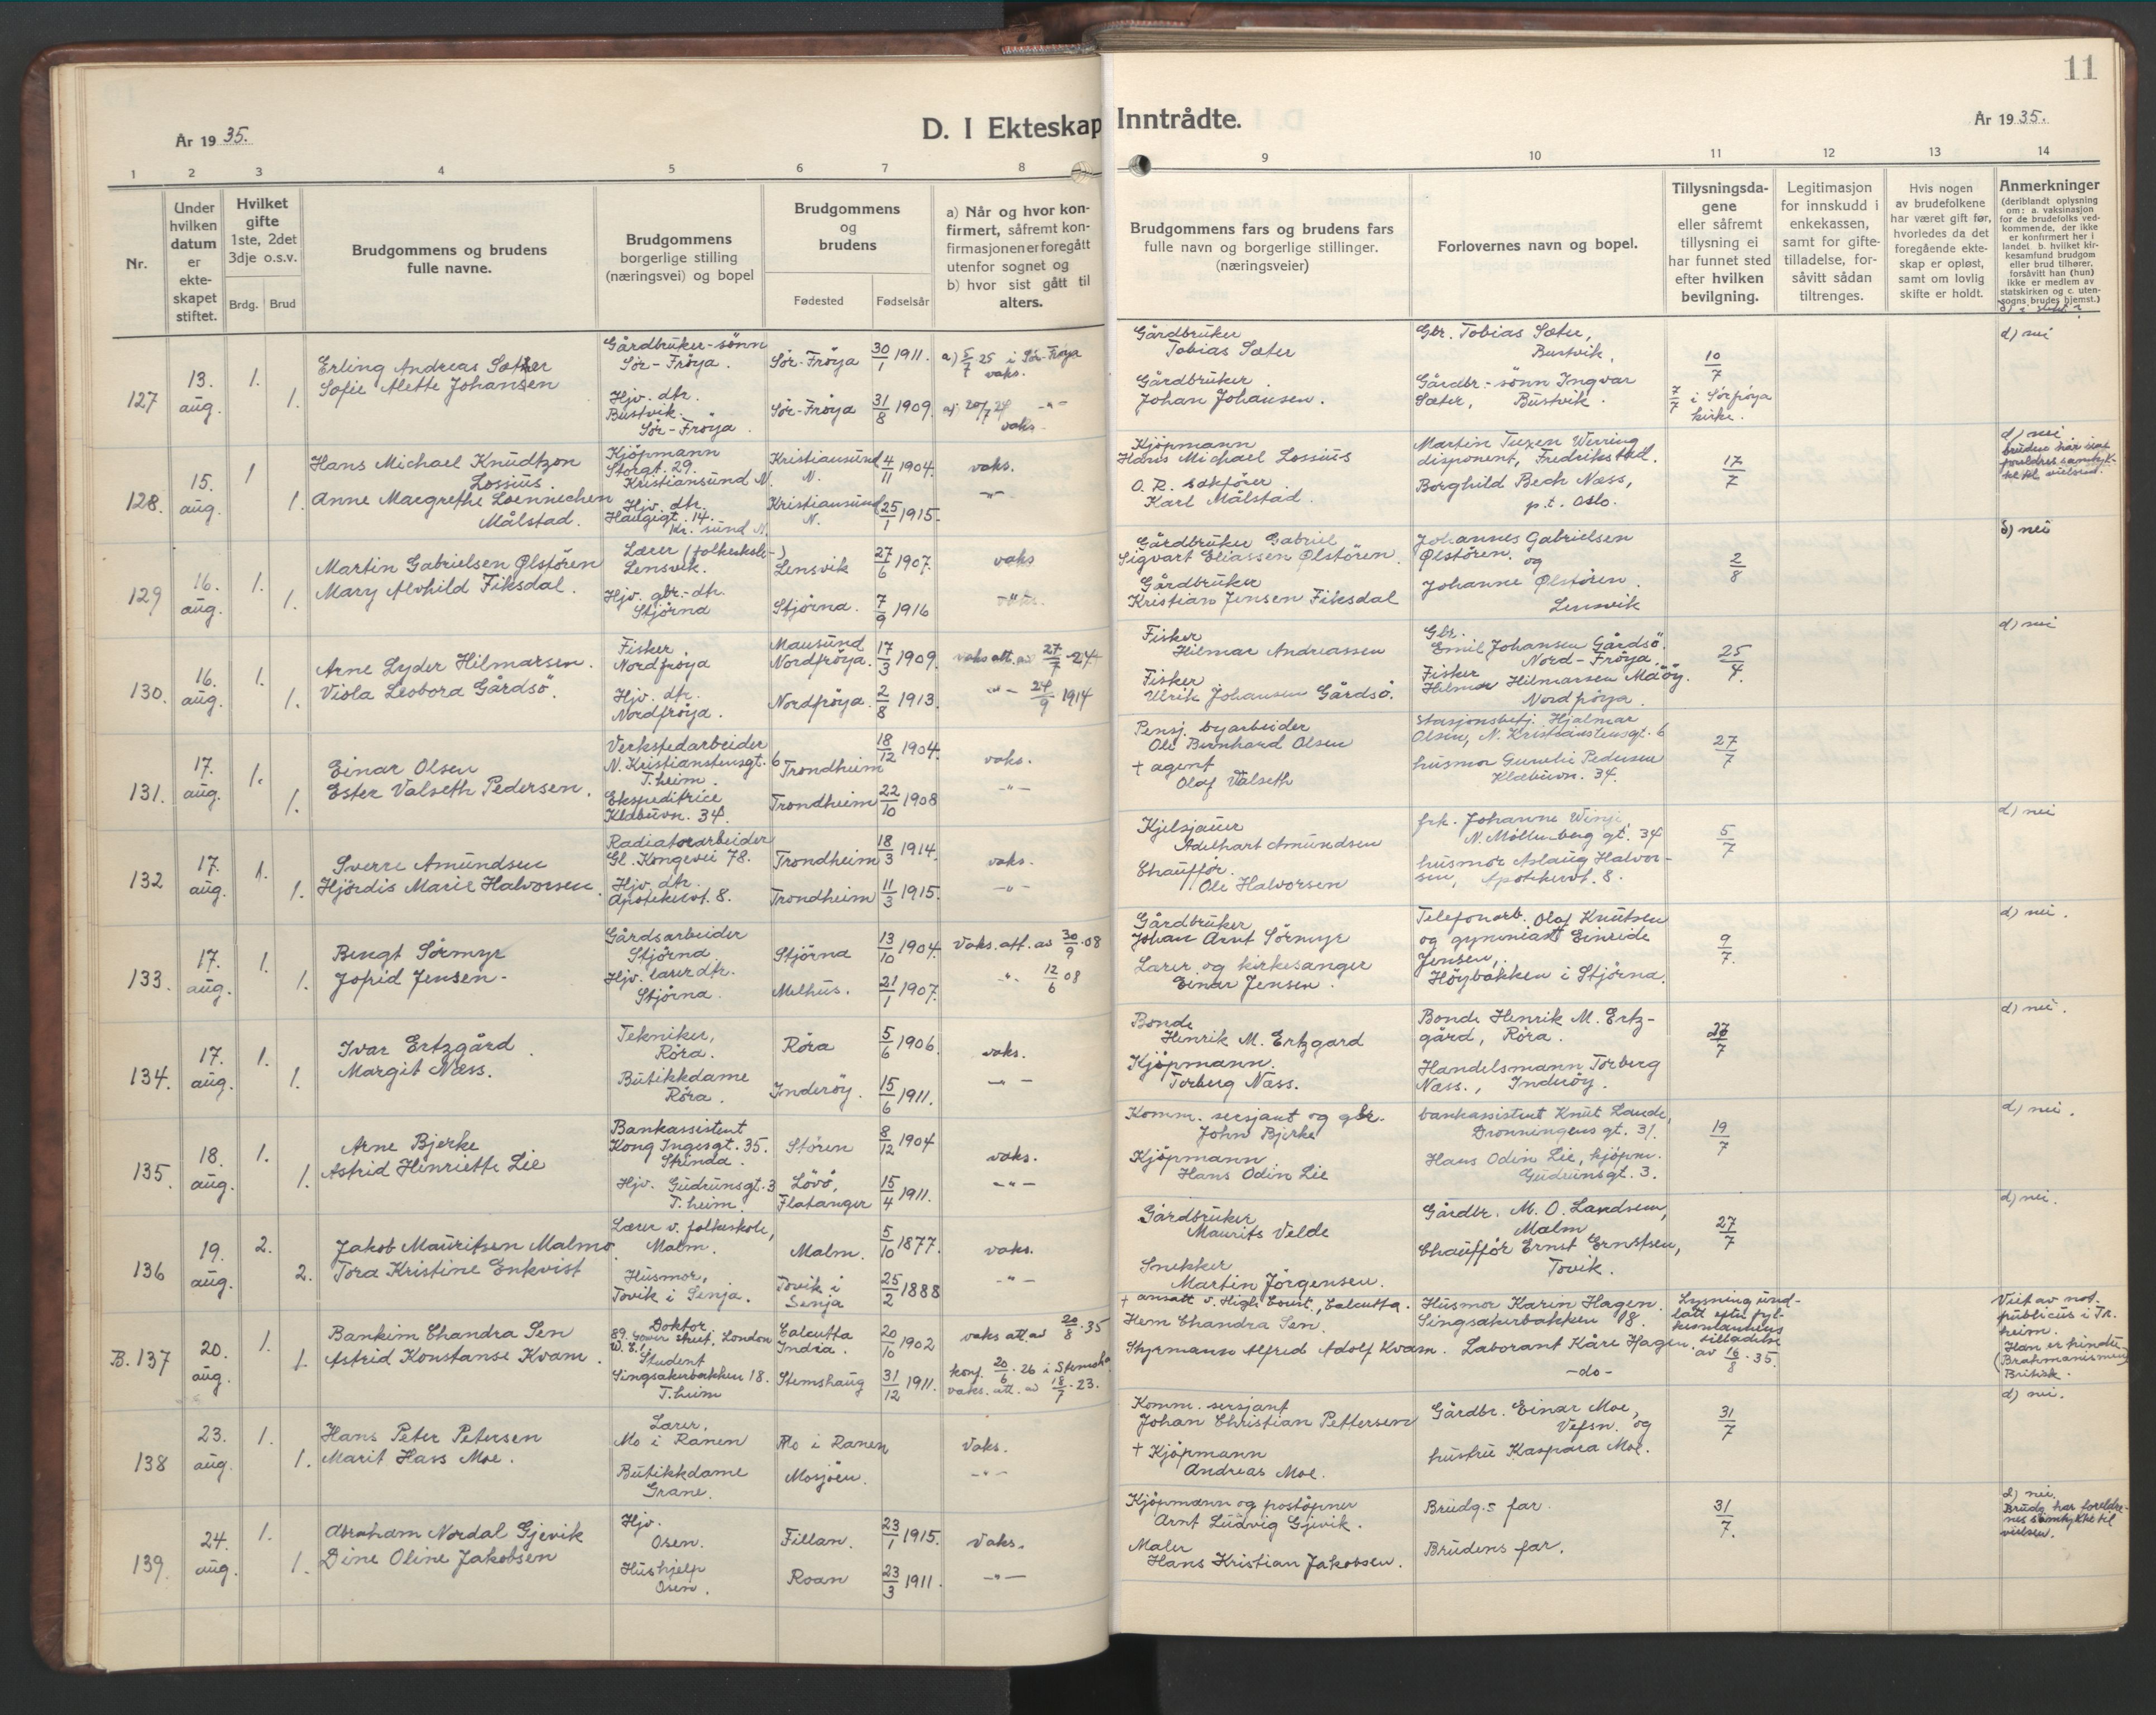 11
År 1935.
D. I Ekteskap Inntrådte.
År 1935.
1 2 3 4 5 6 7 8 9 10 11 12 13 14
Nr.
Under hvilken datum er ekteskapet stiftet.
Hvilket gifte 1ste, 2det 3dje o.s.v.
Brdg. Brud
Brudgommens og brudens fulle navne.
Brudgommens borgerlige stilling (næringsvei) og bopel
Brudgommens og brudens
Fødested Fødselsår
a) Når og hvor konfirmert, såfremt konfirmasjonen er foregått utenfor sognet og
b) hvor sist gått til alters.
Brudgommens fars og brudens fars fulle navn og borgerlige stillinger. (næringsveier)
Forlovernes navn og bopel.
Tillysningsdagene eller såfremt tillysning ei har funnet sted efter hvilken bevilgning.
Legitimasjon for innskudd i enkekassen, samt for giftetilladelse, forsåvitt sådan tiltrenges.
Hvis nogen av brudefolkene har været gift før, hvorledes da det foregående ekteskap er opløst, samt om lovlig skifte er holdt.
Anmerkninger (deriblandt oplysning om: a. vaksinasjon for de brudefolks vedkommende, der ikke er konfirmert her i landet b. hvilket kirkesamfund brudgom eller brud tilhører, forsåvitt han (hun) ikke er medlem av statskirken og c. utensogns brudes hjemst.)
127 13. aug. 1. 1.
Erling Andreas Sæther
Sofie Alette Johansen
Gårdbruker-sønn
Sør-Frøya.
Hjv. dtr.
Bustvik.
Sør-Frøya.
Sør-Frøya 30/1 1911.
Sør-Frøya 31/8 1909.
a) 5/7 25 i Sør-Frøya
vaks.
a) 20/7 24 -"-
vaks.
Gårdbruker
Tobias Sæter
Gårdbruker
Johan Johansen.
Gbr. Tobias Sæter,
Bustvik.
Gårdbr.-sønn Ingvar
Sæter, Bustvik.
10/7
7/7 i Sørfrøya
kirke.
d) nei
128. 15. aug. 1 1.
Hans Michael Knudtzon
Lossius.
Anne Margrethe Loennechen
Målstad.
Kjøpmann
Storgt. 29.
Kristiansund N.
Hjv. dtr.
Haugegt. 14.
Kr. sund N.
Kristiansund N. 4/11 1904.
Kristiansund N. 25/1 1915.
vaks.
-"-
Kjøpmann
Hans Michael Lossius
O. R. sakfører
Karl Målstad.
Martin Tuxen Werring
disponent, Fredrikstad.
Borghild Bech Næss,
p.t. Oslo.
17/7
d) nei
129 16. aug. 1. 1.
Martin Gabrielsen Ølstøren
Mary Alvhild Fiksdal.
Lensvik.
Hjv. gbr.-dtr.
Stjørna
Lensvik 27/6 1907.
Stjørna. 7/9 1916
vaks
Gårdbruker Gabriel
Sigvart Eliassen Ølstøren.
Gårdbruker
Kristian Jensen Fiksdal
Johannes Gabrielsen
Ølstøren. og
Johanne Ølstøren.
Lensvik
2/8
d) nei
130. 16. aug. 1. 1.
Arne Lyder Hilmarsen.
Viola Leobora Gårdsø.
Fisker
Nordfrøya
Hjv. dtr.
Nordfrøya.
Mausund
Nordfrøya. 17/3 1909.
Nordfrøya. 2/8 1913.
vaks att. av 27/7-24
-"- 24/9 1914
Fisker
Hilmar Andreassen
Fisker
Ulrik Johansen Gårdsø.
Gbr.
Emil Johansen Gårdsø.
Nord-Frøya.
Fisker
Hilmar Hilmarsen Måøy.
Nordfrøya.
25/4.
d) nei
131. 17. aug. 1. 1.
Einar Olsen
Ester Valseth Pedersen.
Verkstedarbeider
N. Kristianstensgt. 6
T.heim.
Ekspeditrice
Klæbuvn. 34.
Trondheim 18/12 1904.
Trondheim 22/10 1908
vaks.
-"-
Pensj. byarbeider
Ole Bernhard Olsen
+ agent
Olaf Valseth
Stasjonsbetj. Hjalmar
Olsen, N. Kristianstensgt. 6
husmor Gunelie Pedersen
Klæbuvn. 34.
27/7
132 17. aug. 1. 1.
Sverre Amundsen
Hjørdis Marie Halvorsen.
Radiatorarbeider
Gl. Kongevei 78.
Hjv. dtr.
Apotekervt. 8.
Trondheim 18/3 1914.
Trondheim 11/3 1915.
vaks.
-"-
Kjelsjauer
Adelhart Amundsen
Chauffør.
Ole Halvorsen
frk. Johanne
N. Møllenberg gt. 34
husmor Aslaug Halvorsen,
Apotekervt. 8.
5/7
d) nei
133. 17. aug. 1. 1.
Bengt Sørmyr
Jofrid Jensen-
Gårdsarbeider
Stjørna
Hjv. lærerdtr.
Stjørna.
Stjørna 13/10 1904.
Melhus. 21/1 1907.
Vaks. att. av 30/9.08
-"- 12/6 08
Gårdbruker
Johan Arnt Sørmyr
Lærer og kirkesanger
Einar Jensen.
Telefonarb. Olaf Knutsen
og gymniast Einride
Jensen,
Høybakken i Stjørna.
9/7.
d) nei.
134. 17. aug. 1. 1.
Ivar Ertzgård.
Margit Næss.
Tekniker,
Røra.
Butikkdame
Røra.
Røra 5/6 1906.
Inderøy. 15/6 1911.
vaks.
-"-
Bonde
Henrik M. Ertzgard
Kjøpmann.
Torberg Næss.
Bonde Henrik M. Ertzgård, Røra.
Handelsmann Torberg
Næss., Inderøy.
27/7
d) nei.
135. 18. aug. 1. 1.
Arne Bjerke
Astrid Henriette Lie
Bankassistent
Kong Ingesgt. 35.
Strinda.
Hjv. Gudrunsgt. 3
T.heim.
Støren 8/12 1904
Løvø,
Flatanger 15/4 1911.
vaks.
-"-
Komm. sersjant og gbr.
John Bjerke
Kjøpmann
Hans Odin Lie
bankassistent Knut Lande,
Dronningens gt. 31.
Hans Odin Lie, kjøpm.
Gudrunsgt. 3.
19/7
d) nei.
136 19. aug. 2. 2.
Jakob Mauritsen Malmo.
Tora Kristine Enkvist
Lærer v. folkeskole,
Malm.
Husmor,
Tovik i Senja.
Malm. 5/10 1877.
Tovik i
Senja 25/2 1888
vaks.
-"-
Gårdbruker
Maurits Velde
Snekker
Martin Jørgensen.
Gårdbr. M. O. Landsem,
Malm
Chauffør Ernst Ernstsen,
Tovik.
27/7
d) nei.
B. 137 20. aug. 1. 1.
Bankim Chandra Sen
Astrid Konstanse Kvam.
Doktor
89. Gower Street, London
W.C.1.
Student
Singsakerbakken 18.
T.heim
Calcutta
India. 20/10 1902
Stemshaug 31/12 1911.
vaks att. av 20/8.35
konf. 20/6.26 i Stemsh.
vaks. att. av 18/7.23.
+ ansatt v. High Court., Calcutta.
Hem Chandra Sen.
Styrmann Alfred Adolf Kvam.
Husmor Karin Hagen.
Singsakerbakken 18.
Laborant Kåre Hagen.
-do-
Lysning undlatt efter fylkesmannens
tilladelse
av 16/8.35.
Viet av not.
publicus i Tr.
heim.
Han er hindu
(Brahmanismen)
Britisk.
138 23. aug. 1. 1.
Hans Peter Petersen
Marit Hass Moe.
Lærer,
Mo i Ranen
Butikkdame
Grane.
Mo i Ranen
Mosjøen.
Vaks.
-"-
Komm. sersjant
Johan Christian Pettersen
+ Kjøpmann
Andreas Moe.
Gårdbr. Einar Moe,
Vefsn. og
hustru Kaspara Moe.
31/7
d) nei.
139. 24. aug. 1. 1.
Abraham Nordal Gjevik
Dine Oline Jakobsen
Hjv.
Osen.
Hushjelp
Osen.
Fillan. 23/1 1915.
Roan 23/3 1911.
Vaks.
-"-
Kjøpmann og postøpner
Arnt Ludvig Gjevik.
Maler
Hans Kristian Jakobsen.
Brudg.s far.
Brudens far.
31/7.
d) nei.
Brudg. har foreldrenes samtykke til
vielsen.